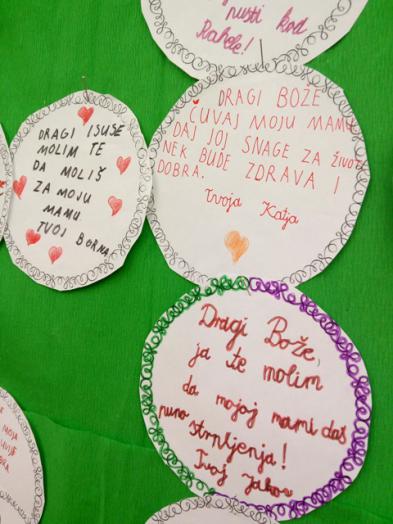 pusti kod
Rahele!
DRAGI ISUSE
MOLIM TE
DA MOLIŠ
ZA MOJU
MAMU
TVOJ BORNA
DRAGI BOŽE
ČUVAJ MOJU MAMU
DAJ JOJ SNAGE ZA ŽIVOT
NEK BUDE ZDRAVA I
DOBRA.
tvoja Katja
Dragi Bože,
ja te molim
da mojoj mami daš
puno strpljenja!
Tvoj Jakov
MOJA